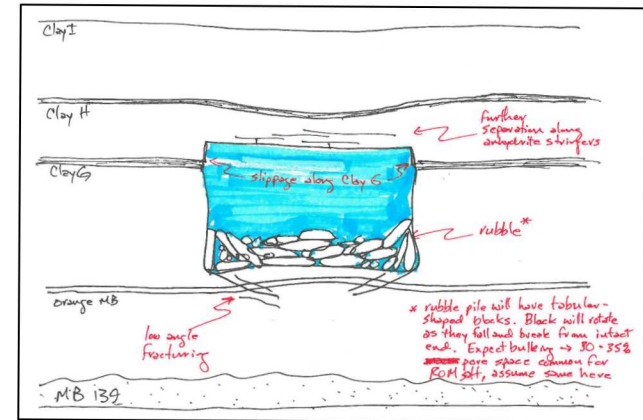 Clay I
Clay H
further
separation along
anhydrite stringers
Clay G
slippage along Clay G
rubble*
Orange MB
low angle
fracturing
* rubble pile will have tabular-
shaped blocks. Block will rotate
as they fall and break from intact
end. Expect bulking → 30-35%
pore space common for
ROM salt, assume same here
MB 139